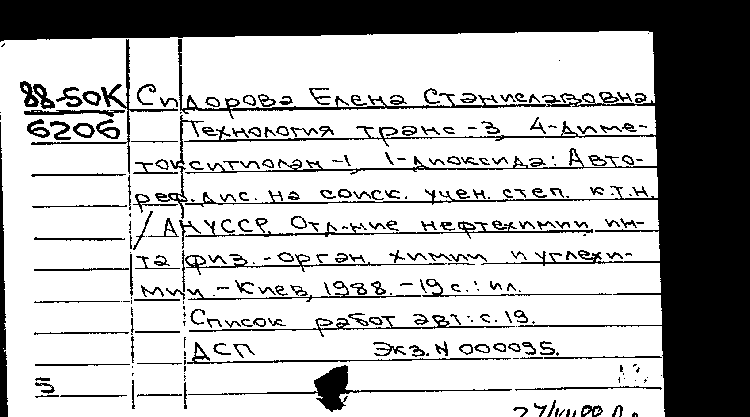 88-50К Сидорова Елена Станиславовна.
6206 Технология транс-3, 4-диме-
токситиолан-1, 1-диоксида: Авто-
реф. дис. на соиск. учен. степ. к.т.н.
/АН УССР, Отд-ние нефтехимии ин-
та физ.-орган. химии и углехи-
мии. - Киев, 1988. - 19 с.: ил.
Список работ авт.: с. 19.
ДСП Экз. N 000095.
5